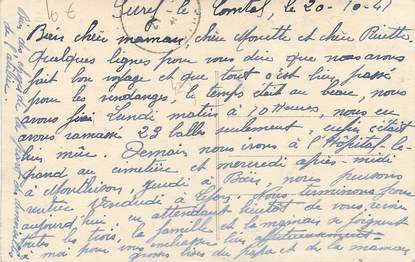 le Comtal, le 20-10-41
Bien chère maman, chère Monette et chère Pierrette
Quelques lignes pour vous dire que nous avons
fait bon voyage et que tout s'est bien passé
pour les vendanges, le temps était au beau, nous
avons fini Lundi matin à 10 heures, nous en
avons ramassé 23 balles seulement, enfin c'était
bien mûr. Demain nous irons à l'Hôpital-le-
grand au cimetière et mercredi après-midi
à Montbrison, jeudi à Boën, nous pensons
rentrer Vendredi. Nous terminons pour
aujourd'hui en attendant bientôt de vous revoir
toutes les trois, la famille et la maman se joignent
à moi pour vous embrasser bien
grosses bises du papa et de la maman